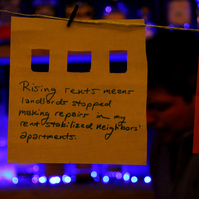 Rising rents means
landlords stopped
making repairs in my
rent-stabilized neighbors'
apartments.